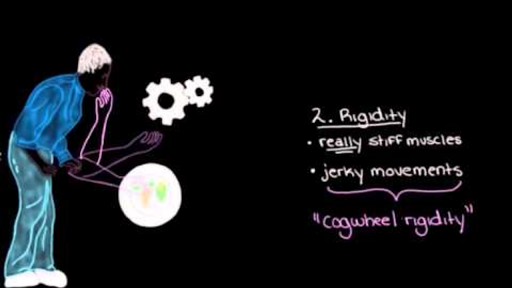 2. Rigidity
• really stiff muscles
• jerky movements
"cogwheel rigidity"